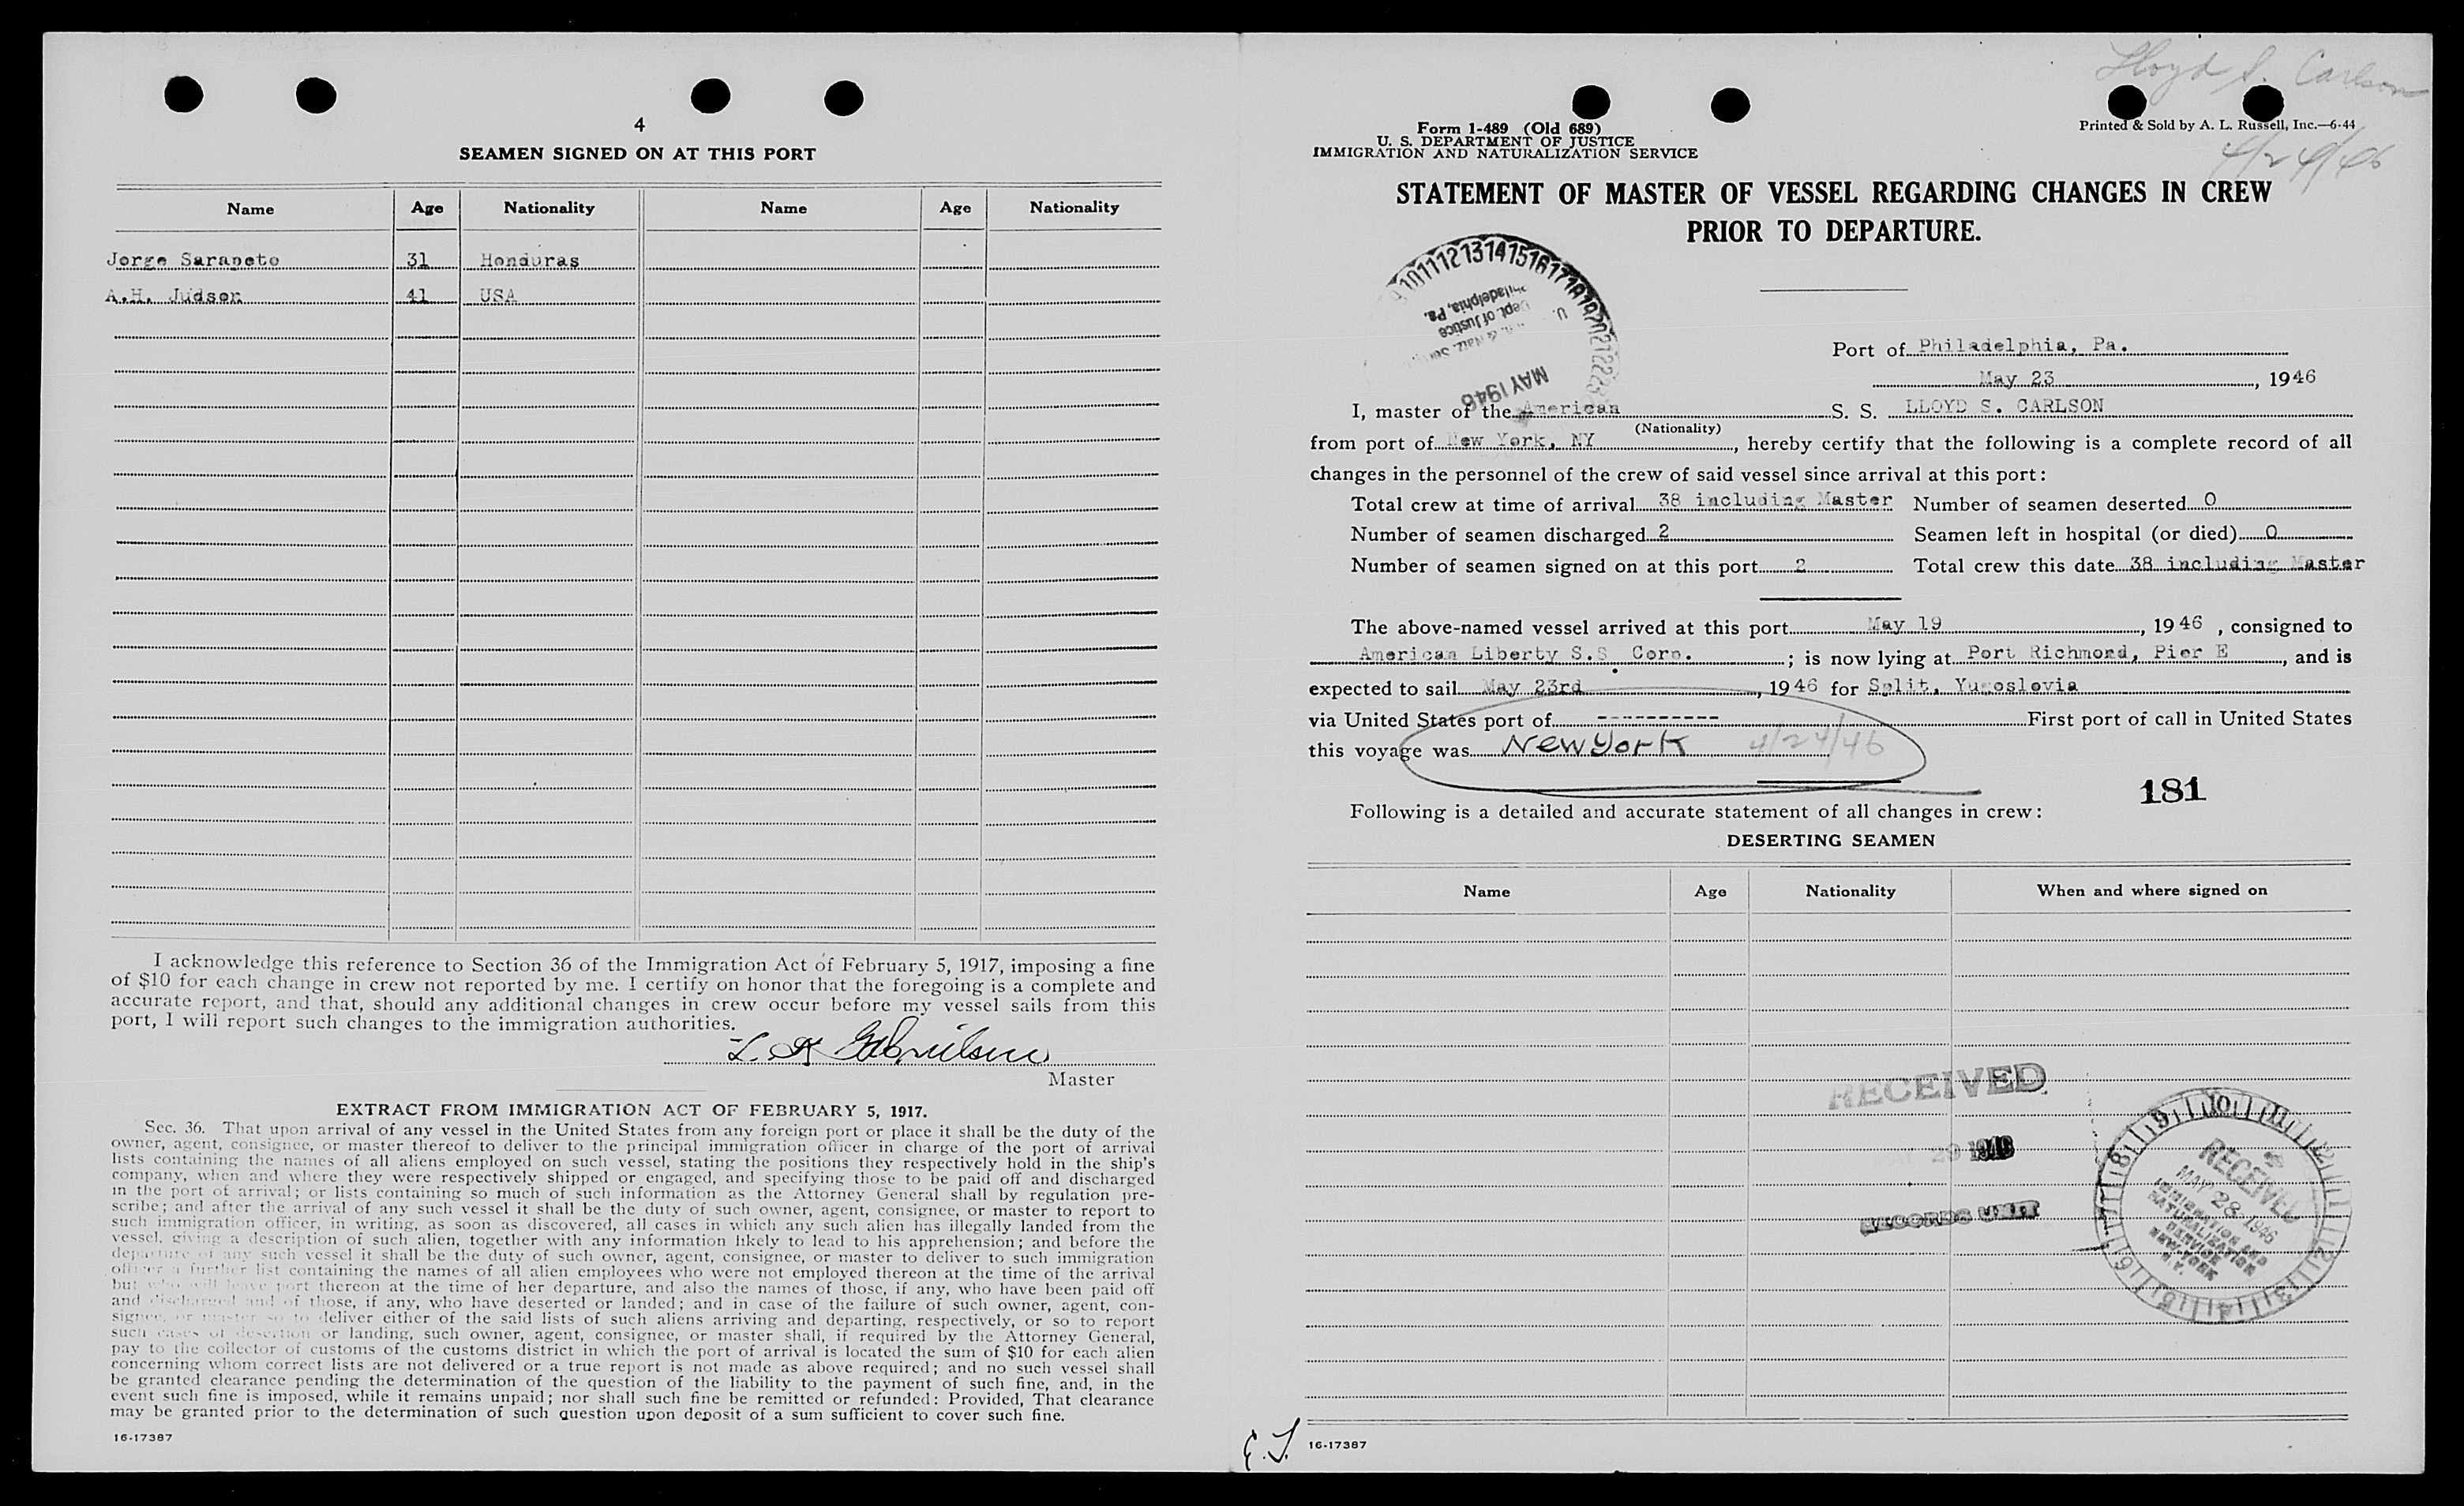 4
SEAMEN SIGNED ON AT THIS PORT
Name Age Nationality Name Age Nationality
Jorge Sarapeto 31 Honduras
A.H. Judson 41 USA
I acknowledge this reference to Section 36 of the Immigration Act of February 5, 1917, imposing a fine
of $10 for each change in crew not reported by me. I certify on honor that the foregoing is a complete and
accurate report, and that, should any additional changes in crew occur before my vessel sails from this
port, I will report such changes to the immigration authorities.
Master
EXTRACT FROM IMMIGRATION ACT OF FEBRUARY 5, 1917.
Sec. 36. That upon arrival of any vessel in the United States from any foreign port or place it shall be the duty of the
owner, agent, consignee, or master thereof to deliver to the principal immigration officer in charge of the port of arrival
lists containing the names of all aliens employed on such vessel, stating the positions they respectively hold in the ship's
company, when and where they were respectively shipped or engaged, and specifying those to be paid off and discharged
in the port of arrival; or lists containing so much of such information as the Attorney General shall by regulation pre-
scribe; and after the arrival of any such vessel it shall be the duty of such owner, agent, consignee, or master to report to
such immigration officer, in writing, as soon as discovered, all cases in which any such alien has illegally landed from the
vessel, giving a description of such alien, together with any information likely to lead to his apprehension; and before the
departure of any such vessel it shall be the duty of such owner, agent, consignee, or master to deliver to such immigration
officer a further list containing the names of all alien employees who were not employed thereon at the time of the arrival
but who will leave port thereon at the time of her departure, and also the names of those, if any, who have been paid off
and discharged and of those, if any, who have deserted or landed; and in case of the failure of such owner, agent, con-
signee, or master so to deliver either of the said lists of such aliens arriving and departing, respectively, or so to report
such cases of desertion or landing, such owner, agent, consignee, or master shall, if required by the Attorney General,
pay to the collector of customs of the customs district in which the port of arrival is located the sum of $10 for each alien
concerning whom correct lists are not delivered or a true report is not made as above required; and no such vessel shall
be granted clearance pending the determination of the question of the liability to the payment of such fine, and, in the
event such fine is imposed, while it remains unpaid; nor shall such fine be remitted or refunded: Provided, That clearance
may be granted prior to the determination of such question upon deposit of a sum sufficient to cover such fine.
16-17387
Lloyd S. Carlson
4/24/46
Form 1-489 (Old 689)
U. S. DEPARTMENT OF JUSTICE
IMMIGRATION AND NATURALIZATION SERVICE
Printed & Sold by A. L. Russell, Inc.—6-44
STATEMENT OF MASTER OF VESSEL REGARDING CHANGES IN CREW
PRIOR TO DEPARTURE.
10 11 12 13 14 15 16 17 18 19 20 21 22 23
Philadelphia, Pa.
Dept of Justice
MAY 1946
Port of Philadelphia, Pa.
May 23, 1946
I, master of the American S. S. LLOYD S. CARLSON
(Nationality)
from port of New York, NY, hereby certify that the following is a complete record of all
changes in the personnel of the crew of said vessel since arrival at this port:
Total crew at time of arrival 38 including Master Number of seamen deserted 0
Number of seamen discharged 2 Seamen left in hospital (or died) 0
Number of seamen signed on at this port 2 Total crew this date 38 including Master
The above-named vessel arrived at this port May 19, 1946, consigned to
American Liberty S.S. Corp.; is now lying at Port Richmond, Pier E, and is
expected to sail May 23rd, 1946 for Split, Yugoslovia
via United States port of ---------- First port of call in United States
this voyage was New York 4/24/46
181
Following is a detailed and accurate statement of all changes in crew:
DESERTING SEAMEN
Name Age Nationality When and where signed on
RECEIVED
29 1946
RECORDS UNIT
RECEIVED
MAY 28 1946
IMMIGRATION AND
NATURALIZATION
SERVICE
NEW YORK
N.Y.
16-17387